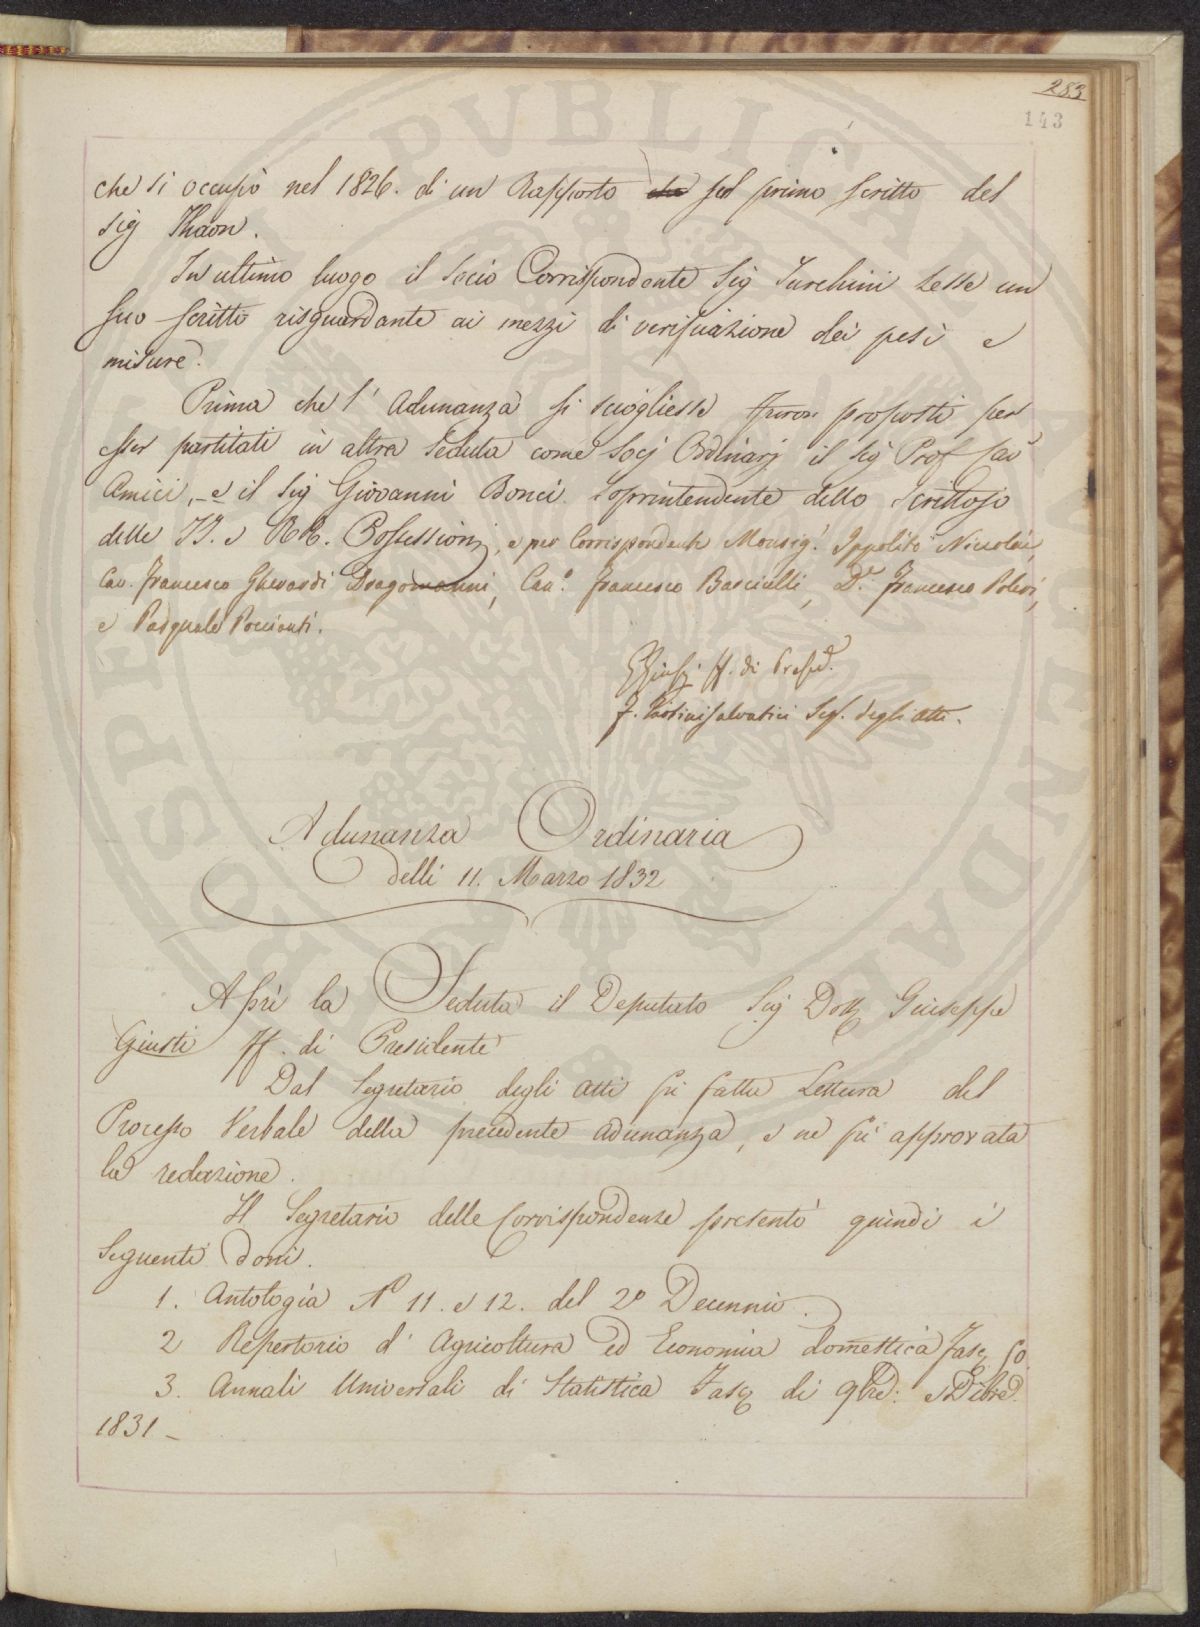 283
143
che si occupò nel 1826. di un Rapporto sul primo scritto del
sig Thaon.
In ultimo luogo il Socio Corrispondente Sig Turchini Lesse un
suo scritto risguardante ai mezzi di verificazione dei pesi e
misure.
Prima che l' Adunanza si sciogliesse furon proposti per
esser partitati in altra Seduta come Socj Ordinarj il Sig Prof Cav
Amici, e il Sig Giovanni Bonci Soprintendente dello Scrittojo
delle II. e RR. Possessioni, e per Corrispondenti Monsig.r Ippolito Niccolai,
Cav. Francesco Gherardi Dragomanni, Can.o Francesco Bascialli, D.r Francesco Poleri,
e Pasquale Poccianti.
GGiusti ff. di Presid.e
Seg. degli Atti.
Adunanza Ordinaria
delli 11. Marzo 1832
Aprì la Seduta il Deputato Sig Dott Giuseppe
Giusti ff. di Presidente
Dal Segretario degli Atti fu fatta Lettura del
Processo Verbale della precedente adunanza, e ne fu approvata
la redazione.
Il Segretario delle Corrispondenze presentò quindi i
seguenti doni.
1. Antologia No 11. e 12. del 2o Decennio.
2 Repertorio d' Agricoltura ed Economia domestica Fasc 50.
3. Annali Universali di Statistica Fasc di 9bre. e Dibre.
1831 _